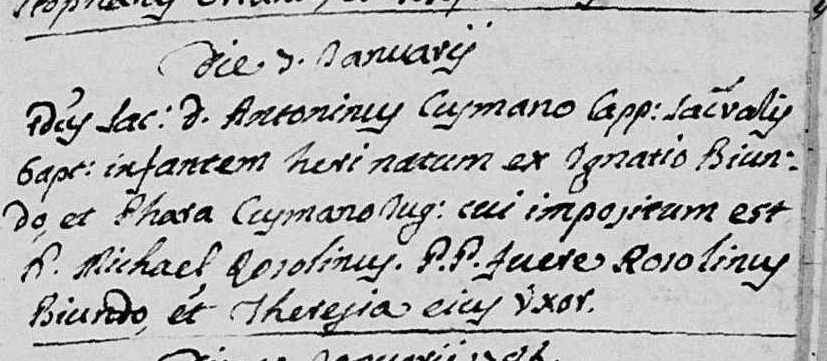 Die 7. Januarij
Idem Sac: D. Antoninus Cusmano Capp: Sacramentalis
bapt: infantem heri natum ex Ignatio Biun-
do, et Phara Cusmano Jug: cui impositum est
N. Michael Rosolinus. P.P. fuere Rosolinus
Biundo, et Theresia eius Uxor.
Die Januarij